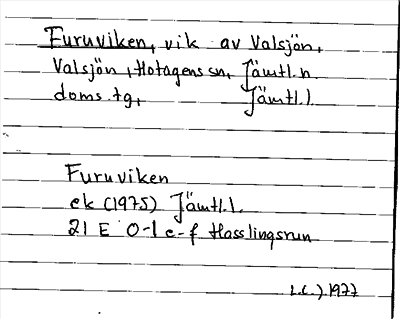 Furuviken, vik av Valsjön,
Valsjön, Hotagens sn, Jämtl. n.
doms. tg, Jämtl. l.
Furuviken
ek (1975) Jämtl. l.
21 E 0-1 e-f Hasslingsrun
1977